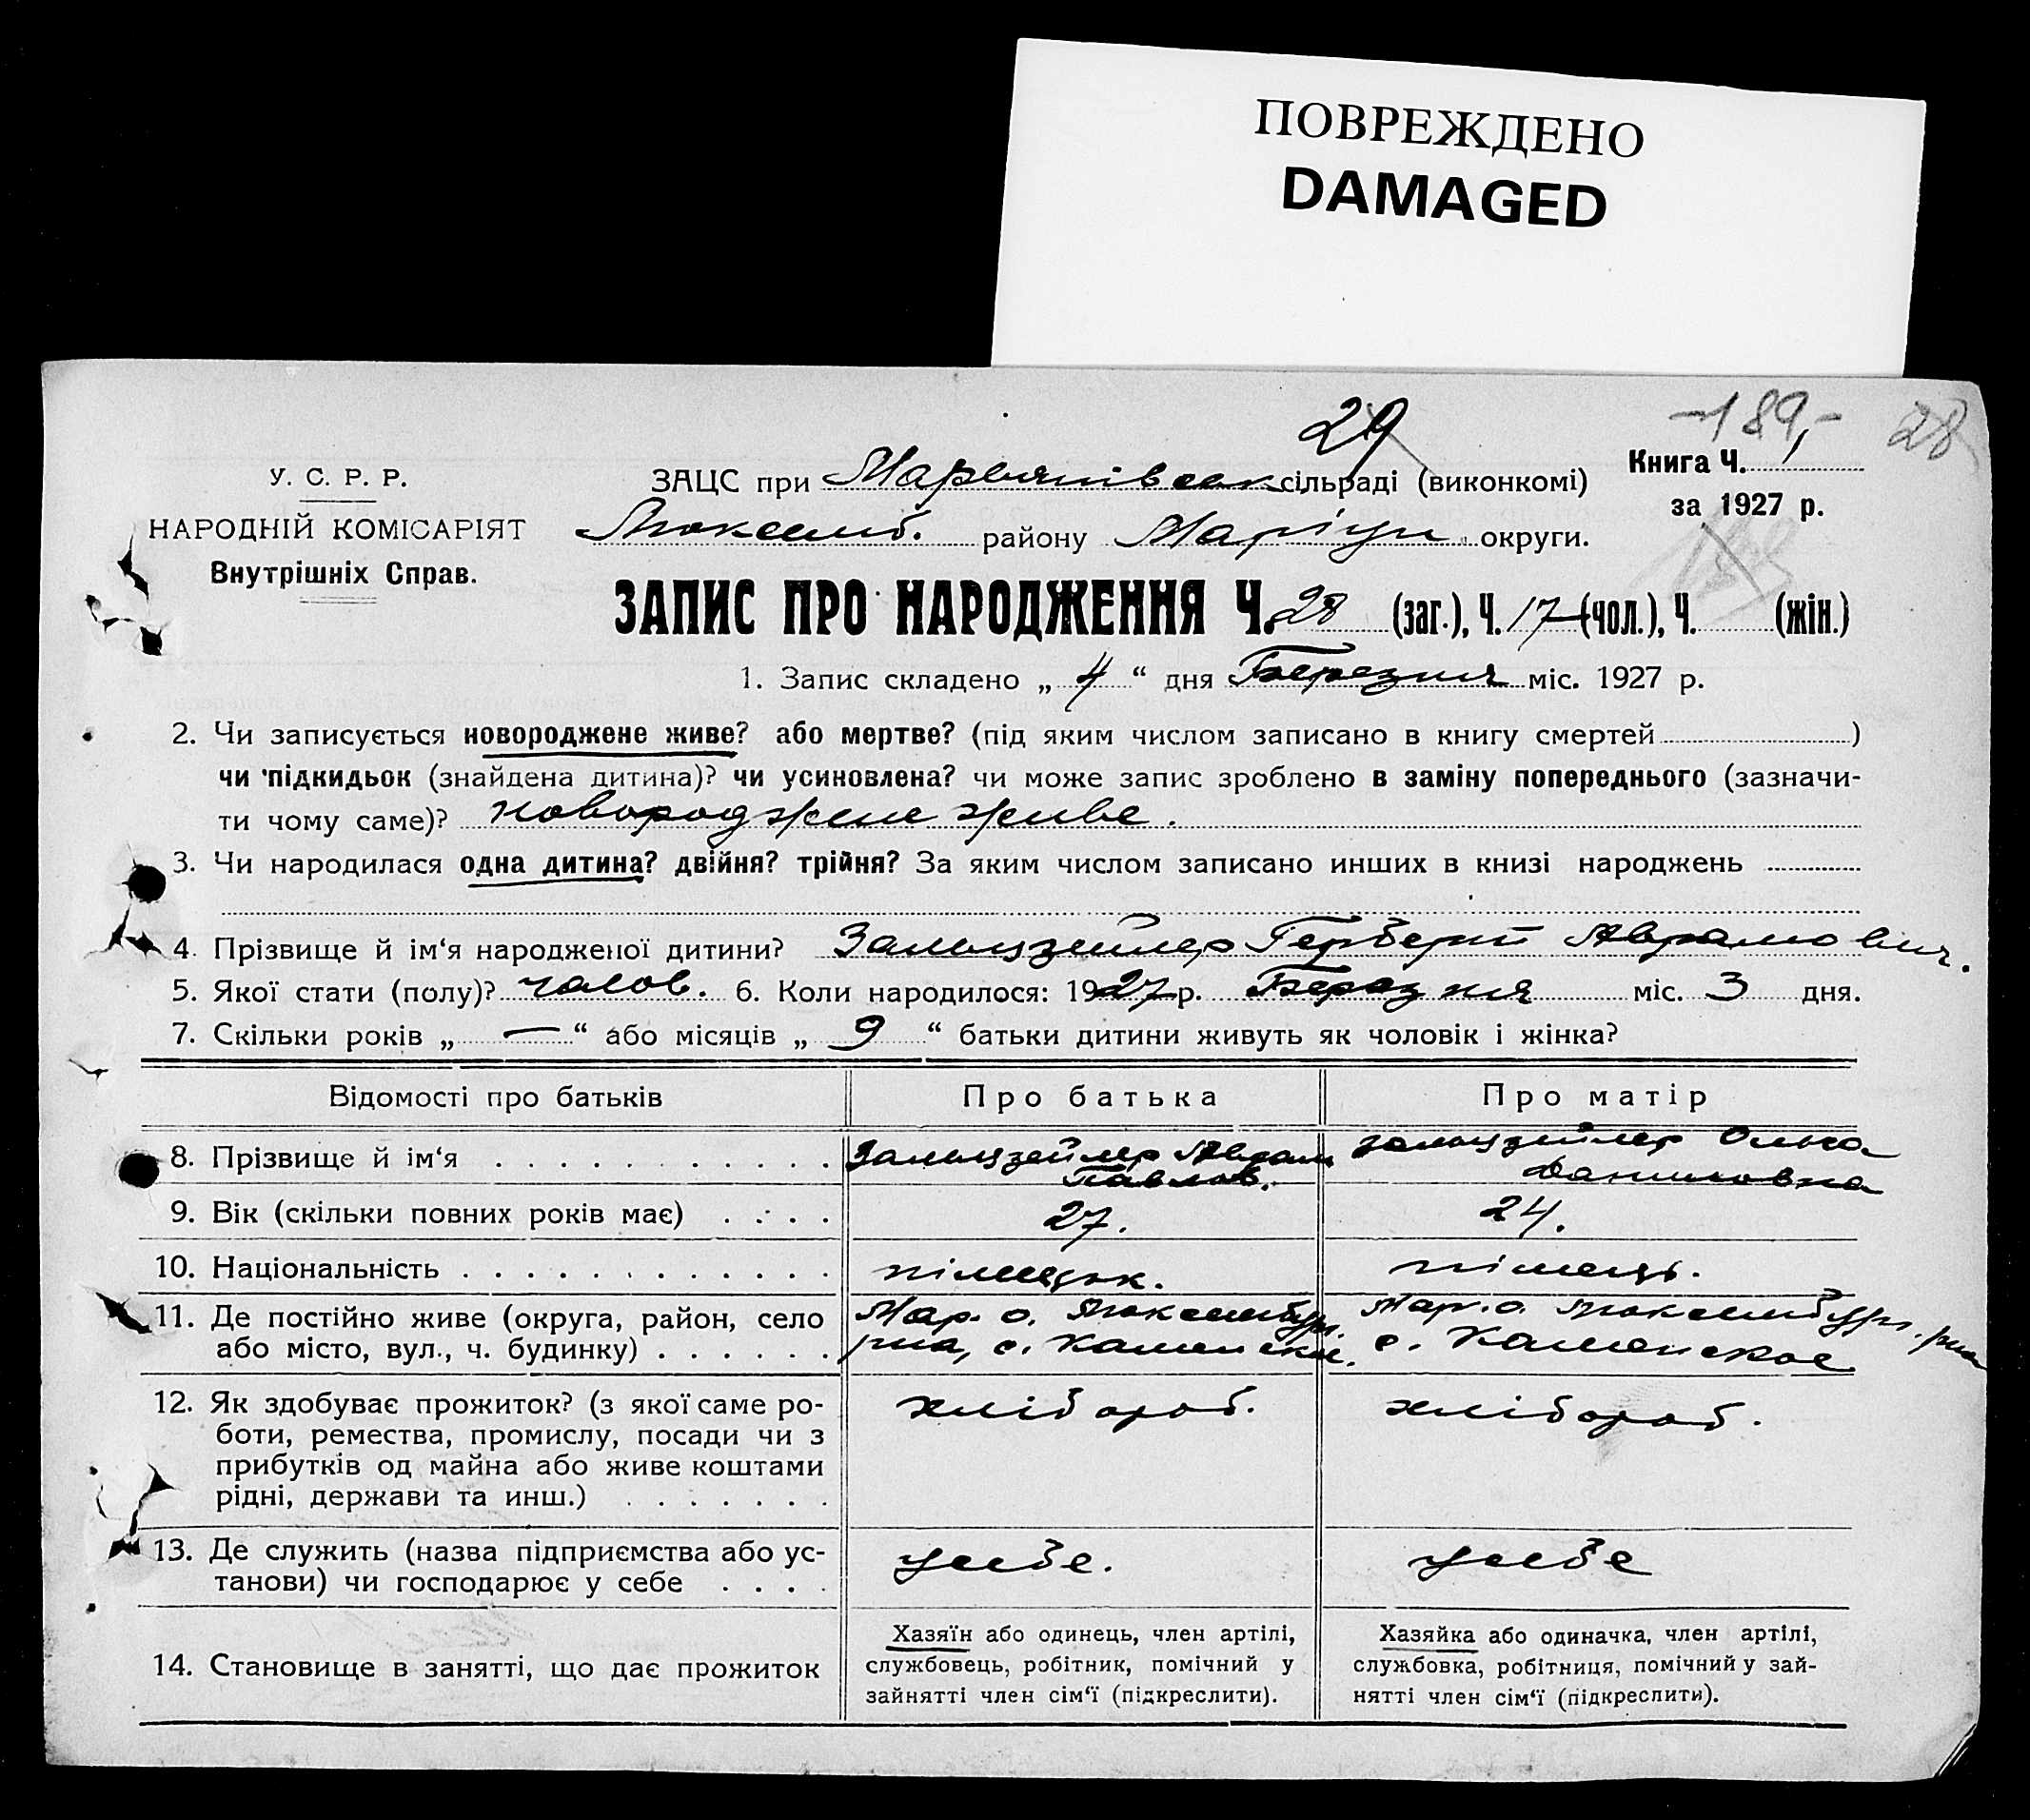 ПОВРЕЖДЕНО
DAMAGED
29
-189,-
28
У. С. Р. Р.
НАРОДНІЙ КОМІСАРІЯТ
Внутрішніх Справ.
ЗАЦС при Марьянівськ сільраді (виконкомі)
Люксемб. району Маріуп округи.
Книга Ч.
за 1927 р.
ЗАПИС ПРО НАРОДЖЕННЯ Ч. 28 (заг.), Ч. 17 (чол.), Ч. (жін.)
1. Запис складено „ 4 “ дня Березня міс. 1927 р.
2. Чи записується новороджене живе? або мертве? (під яким числом записано в книгу смертей )
чи підкидьок (знайдена дитина)? чи усиновлена? чи може запис зроблено в заміну попереднього (зазначи-
ти чому саме)? новороджене живе.
3. Чи народилася одна дитина? двійня? трійня? За яким числом записано инших в книзі народжень
4. Прізвище й ім‘я народженої дитини? Зальцзейлер Герберт Аврамович.
5. Якої стати (полу)? чолов. 6. Коли народилося: 1927 р. Березня міс. 3 дня.
7. Скільки років „ — “ або місяців „ 9 “ батьки дитини живуть як чоловік і жінка?
Відомості про батьків Про батька Про матір
8. Прізвище й ім‘я Зальцзейлер Аврам Павлов. Зальцзейлер Ольга Даниловна
9. Вік (скільки повних років має) 27. 24.
10. Національність німецьк. німець.
11. Де постійно живе (округа, район, село
або місто, вул., ч. будинку)
Мар. о. Люксембург.
р-на, с. Каменское.
Мар. о. Люксембург. р-на
с. Каменское
12. Як здобуває прожиток? (з якої саме ро-
боти, ремества, промислу, посади чи з
прибутків од майна або живе коштами
рідні, держави та инш.)
хлібороб.
хлібороб.
13. Де служить (назва підприємства або ус-
танови) чи господарює у себе
у себе.
у себе
14. Становище в занятті, що дає прожиток
Хазяїн або одинець, член артілі,
службовець, робітник, помічний у
зайнятті член сім‘ї (підкреслити).
Хазяйка або одиначка, член артілі,
службовка, робітниця, помічний у зай-
нятті член сім‘ї (підкреслити).